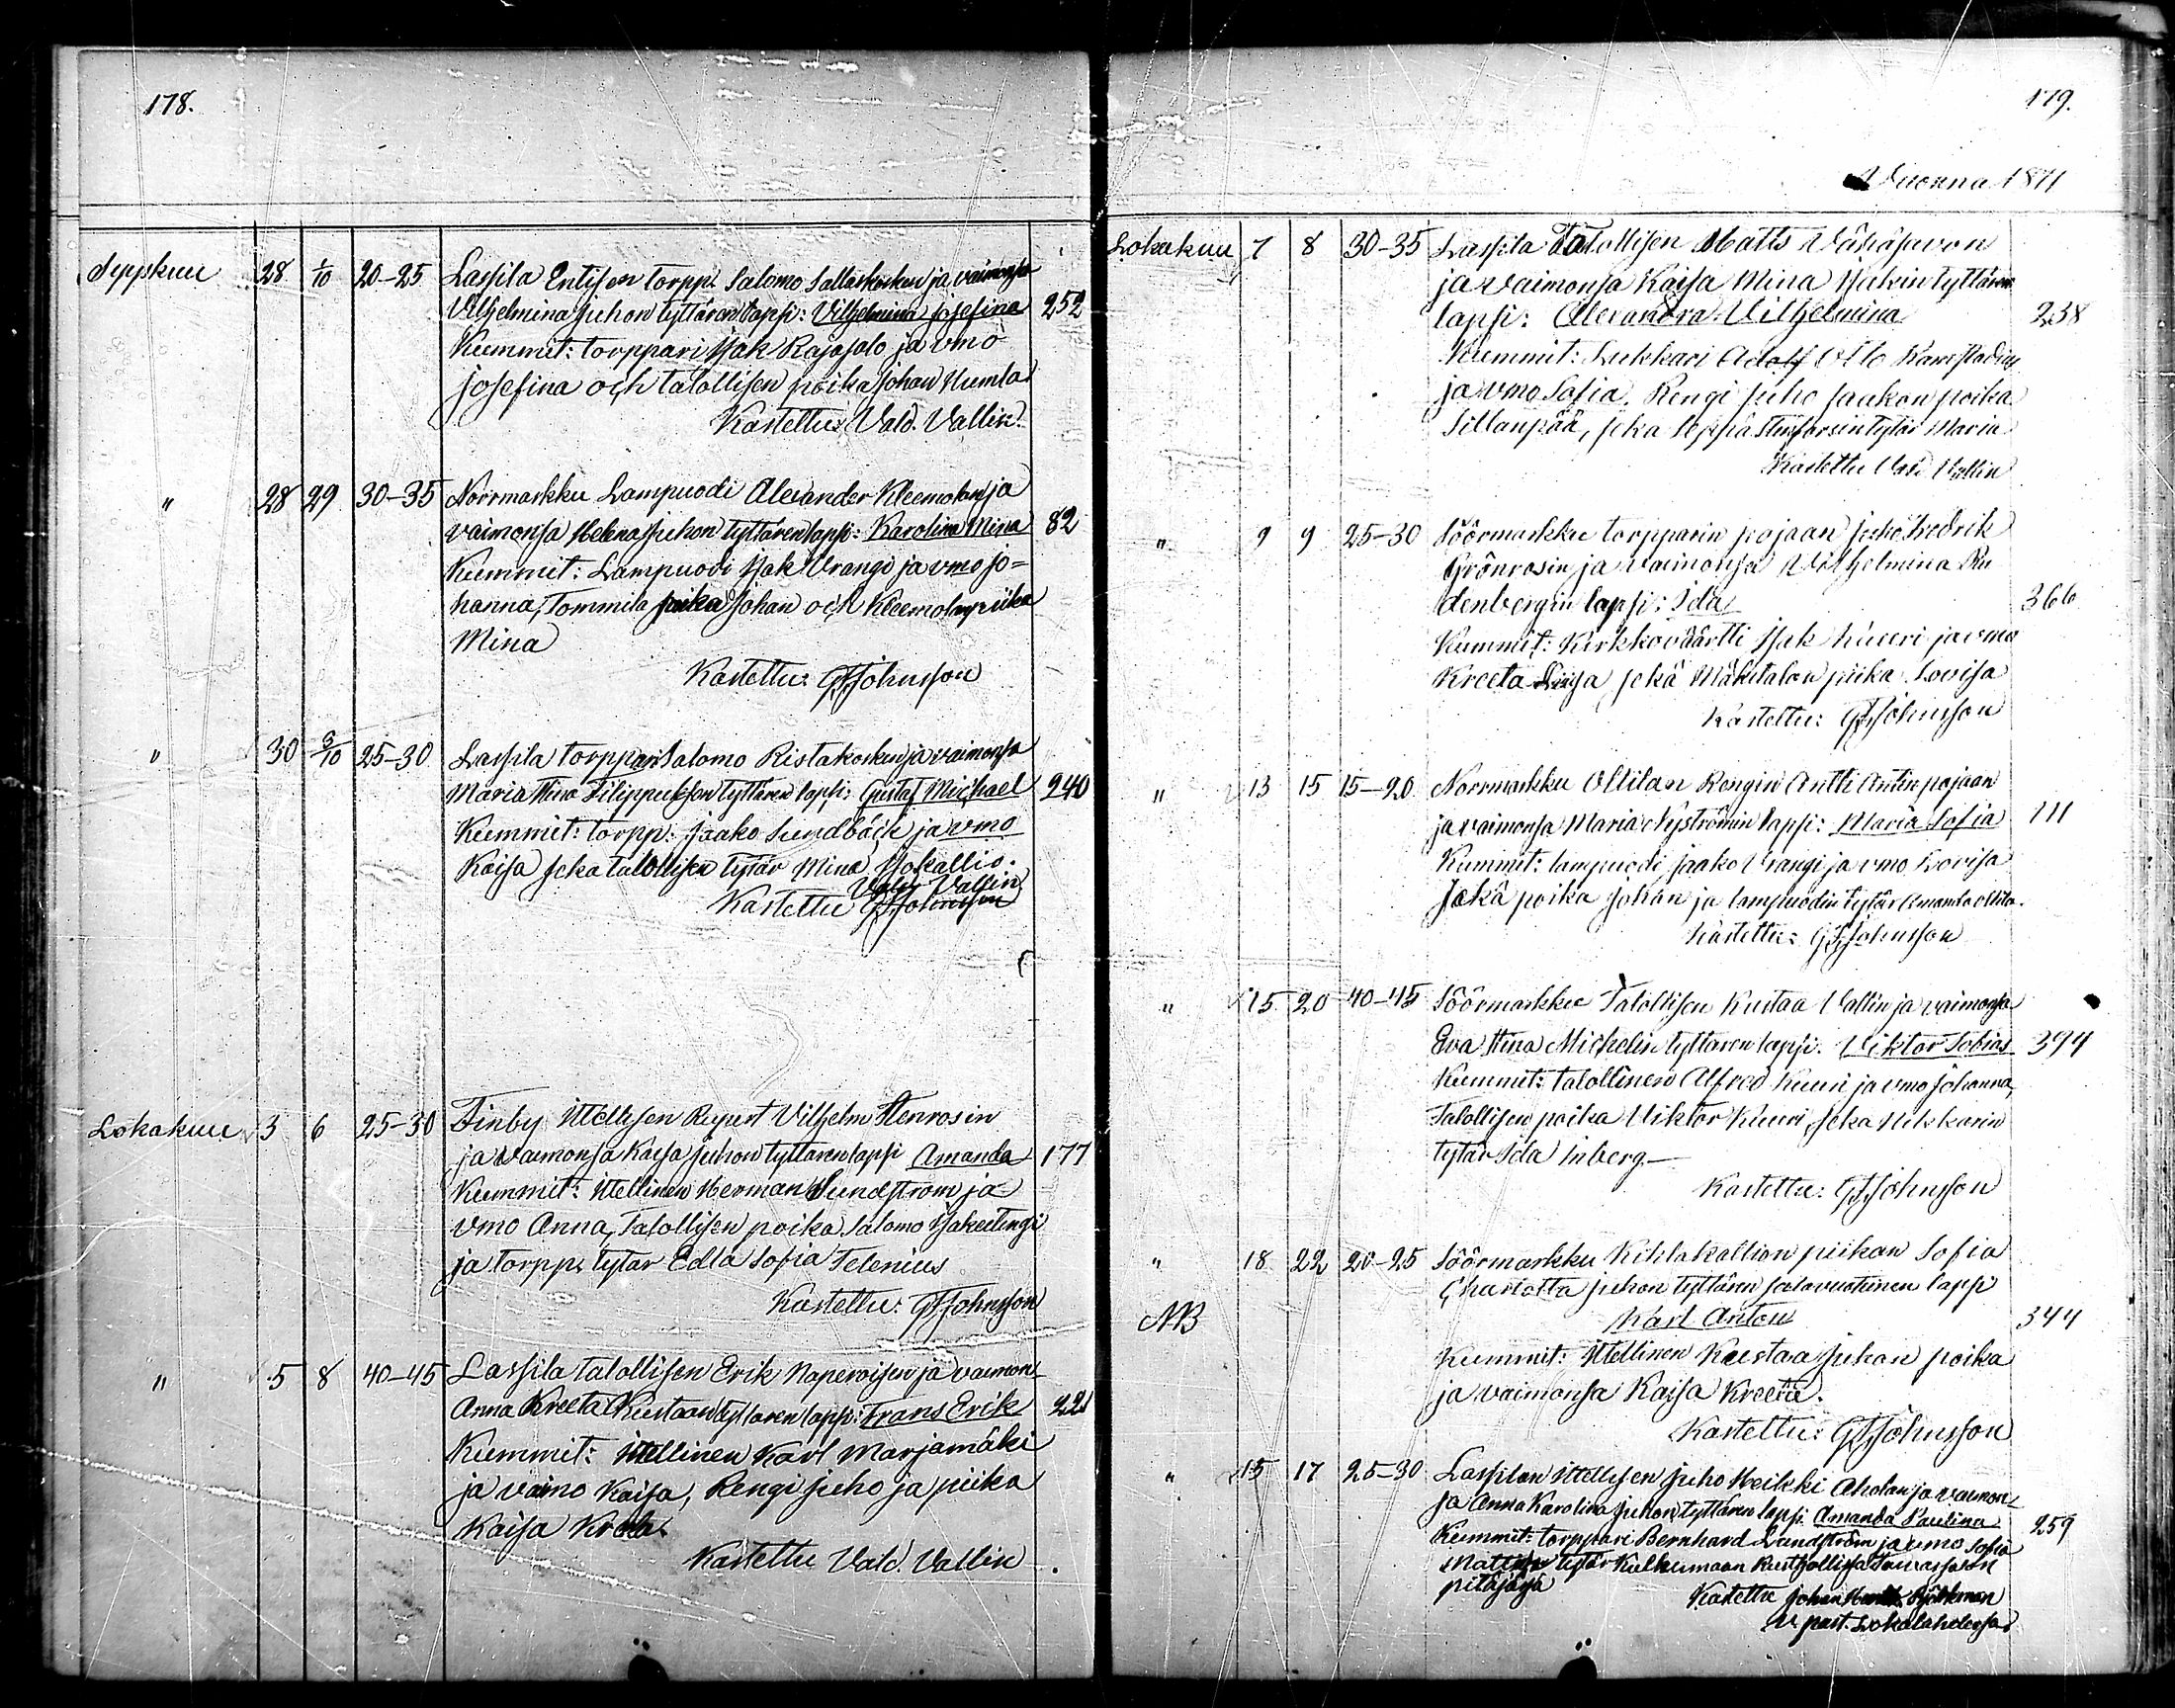 178.
Syyskuu 28 1/10 20-25 Lassila Entisen torpp. Salomo Sallaskosken ja vaimonsa
Vilhelmina Juhon tyttären lapsi: Vilhelmina Josefina 252
Kummit: torppari Isak Rajasalo ja vmo
Josefina och talollisen poika Johan Humla
Kastettu: Vald. Vallin.
" 28 29 30-35 Norrmarkku Lampuodi Alexander Kleemolan ja
vaimonsa Helena Juhon tyttären lapsi: Karolina Mina 82
Kummit: Lampuodi Isak Vrangi ja vmo Jo=
hanna, Tommila poika Johan och Kleemolan piika
Mina
Kastettu: GFJohnsson
" 30 3/10 25-30 Lassila torppari Salomo Ristakosken ja vaimonsa
Maria Stina Filippuksen tyttären lapsi: Gustaf Michael 240
Kummit: torpp: Jaako Sundbäck ja vmo
Kaisa seka talollisen tytär Mina Isokallio.
Vald. Vallin
Kastettu GFJohnsson
Lokakuu 3 6 25-30 Finby Itellisen Vilhelm Stenrosin
ja vaimonsa Kaisa Juhon tyttären lapsi Amanda 177
Kummit: Itellinen Herman Sundström ja
vmo Anna, Talollisen poika Salomo
ja torpp. tytar Edla Sofia Telenius
Kastettu: GFJohnsson
" 5 8 40-45 Lassila talollisen Erik Naperoisen ja vaimon
Anna Kreeta Kustaan tyttaren lapsi: Frans Erik 221
Kummit: Itellinen Karl Marjamäki
ja vaimo Kaisa, Rengi Juho ja piika
Kaisa Kreeta.
Kastettu Vald. Vallin
179.
Vuonna 1871
Lokakuu 7 8 30-35 Lassila Talollisen Matts Vähäsavon
ja vaimonsa Kaisa Mina Isakin tyttären
lapsi: Alexandra Vilhelmina 238
Kummit: Lukkari Adolf Otto
ja vmo Sofia. Rengi Juho Jaakon poika
Sillanpää, seka Seppä tytär Maria
Kastettu Vald Vallin
" 9 9 25-30 Söörmarkku torpparin pojaan Juho Fredrik
Grönrosin ja vaimonsa Vilhelmina Ru
denbergin lapsi: Ida 366
Kummit: Kirkkoväärtti Isak Kuuri ja vmo
Kreeta Liisa sekä Mäkitalon piika Lovisa
Kastettu: GFJohnsson
" 13 15 15-20 Norrmarkku Ollilan Rengin Antti Antin pojaan
ja vaimonsa Maria Nyströmin lapsi: Maria Sofia 111
Kummit: lampuodi Jaako Vrangi ja vmo Lovisa
sekä poika Johan ja lampuodin tytär Amanda Ollila.
Kastettu: GFJohnsson
" 15 20 40-45 Söörmarkku Talollisen Kustaa Vallin ja vaimonsa
Eva Stina Michelin tyttaren lapsi. Viktor Tobias 394
Kummit: talollinen Alfred Kuuri ja vmo Johanna,
Talollisen poika Viktor Kuuri, seka Nikkarin
tytär Ida Inberg.—
Kastettu: GFJohnsson
" 18 22 20-25 Söörmarkku Kiklakallion piikan Sofia
Charlotta Juhon tyttären salavuotinen lapsi
NB Karl Anton 344
Kummit: Itellinen Kustaa Juhan poika
ja vaimonsa Kaisa Kreeta.
Kastettu: GFJohnsson
" 15 17 25-30 Lassilan Itellisen Juho Heikki Aholan ja vaimon
ja Anna Karolina Juhon tyttären lapsi Amanda Paulina 259
Kummit: torppari Bernhard Lundström ja vmo Sofia
tytär Kulkumaan
pitäjäsä
Kastettu Johan Björkman
v. past. Lokalahdelsa